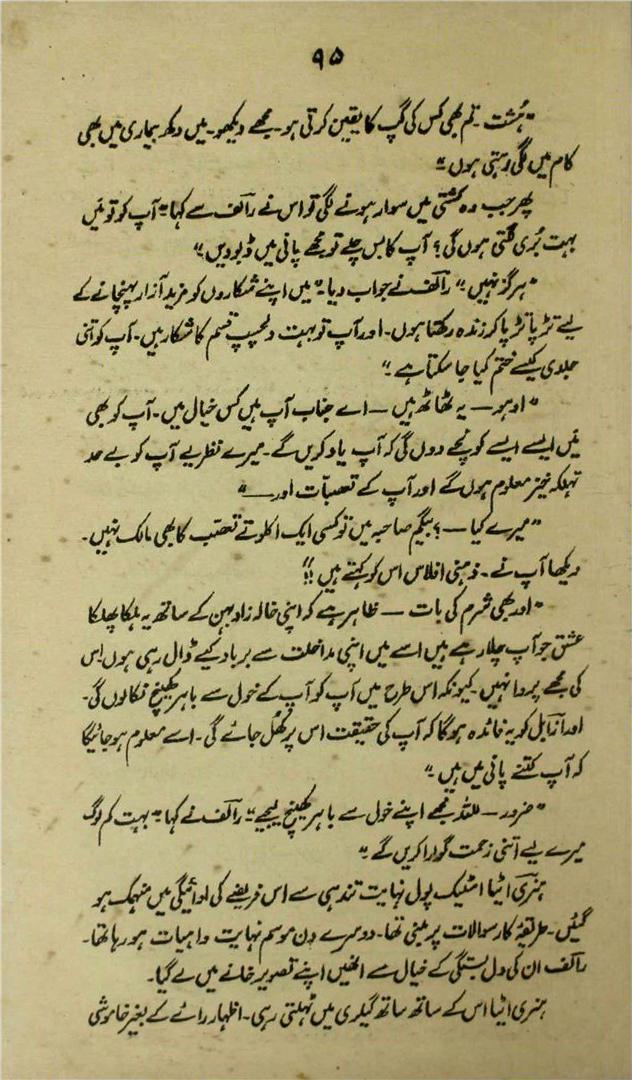 ۹۵
"ہُشت ۔ تم بھی کس کی گپ کا یقین کرتی ہو ۔ مجھے دیکھو ۔ میں دکھ بیماری میں بھی
کام میں لگی رہتی ہوں ۔"
پھر جب وہ کشتی میں سوار ہونے لگی تو اس نے رالف سے کہا ۔" آپ کو تو میَں
بہت بُری لگتی ہوں گی ؟ آپ کا بس چلے تو مجھے پانی میں ڈبو دیں ۔"
"ہرگز نہیں ۔" رالف نے جواب دیا ۔" میں اپنے شکاروں کو مزید آزار پہنچانے کے
لیے تڑپا تڑپا کر زندہ رکھتا ہوں ۔ اور آپ تو بہت دلچسپ قسم کا شکار ہیں ۔ آپ کو اتنی
جلدی کیسے ختم کیا جا سکتا ہے ۔"
"اوہو — یہ ٹھاٹھ ہیں — اے جناب آپ ہیں کس خیال میں ۔ آپ کو بھی
میَں ایسے ایسے کونچے دوں گی کہ آپ یاد کریں گے ۔ میرے نظریے آپ کو بے حد
تہلکہ خیز معلوم ہوں گے اور آپ کے تعصبات اور —"
"میرے کیا — ؟ بیگم صاحبہ میں تو کسی ایک اکلوتے تعصب کا بھی مالک نہیں ۔
دیکھا آپ نے ۔ ذہنی افلاس اس کو کہتے ہیں !!"
"اور بھی شرم کی بات — ظاہر ہے کہ اپنی خالہ زاد بہن کے ساتھ یہ ہلکا پھلکا
عشق جو آپ چلا رہے ہیں اسے میں اپنی مداخلت سے برباد کیے ڈال رہی ہوں ۔ اس
کی مجھے پروا نہیں ۔ کیونکہ اس طرح میں آپ کو آپ کے خول سے باہر کھینچ نکالوں گی ۔
اور ازابل کو یہ فائدہ ہوگا کہ آپ کی حقیقت اس پر کھُل جائے گی ۔ اسے معلوم ہو جائیگا
کہ آپ کتنے پانی میں ہیں ۔"
"ضرور — للہ مجھے اپنے خول سے باہر کھینچ لیجیے ۔" رالف نے کہا ۔" بہت کم لوگ
میرے لیے اتنی زحمت گوارا کریں گے ۔"
ہنری اٹیا اسٹیک پول نہایت تندہی سے اس فریضے کی ادائیگی میں منہمک ہو
گئیں ۔ طریقۂ کار سوالات پر مبنی تھا ۔ دوسرے دن موسم نہایت واہیات ہو رہا تھا ۔
رالف ان کی دل بستگی کے خیال سے انھیں اپنے تصویر خانے میں لے گیا ۔
ہنری اٹیا اس کے ساتھ ساتھ گیلری میں ٹہلتی رہی ۔ اظہار رائے کے بغیر خاموشی